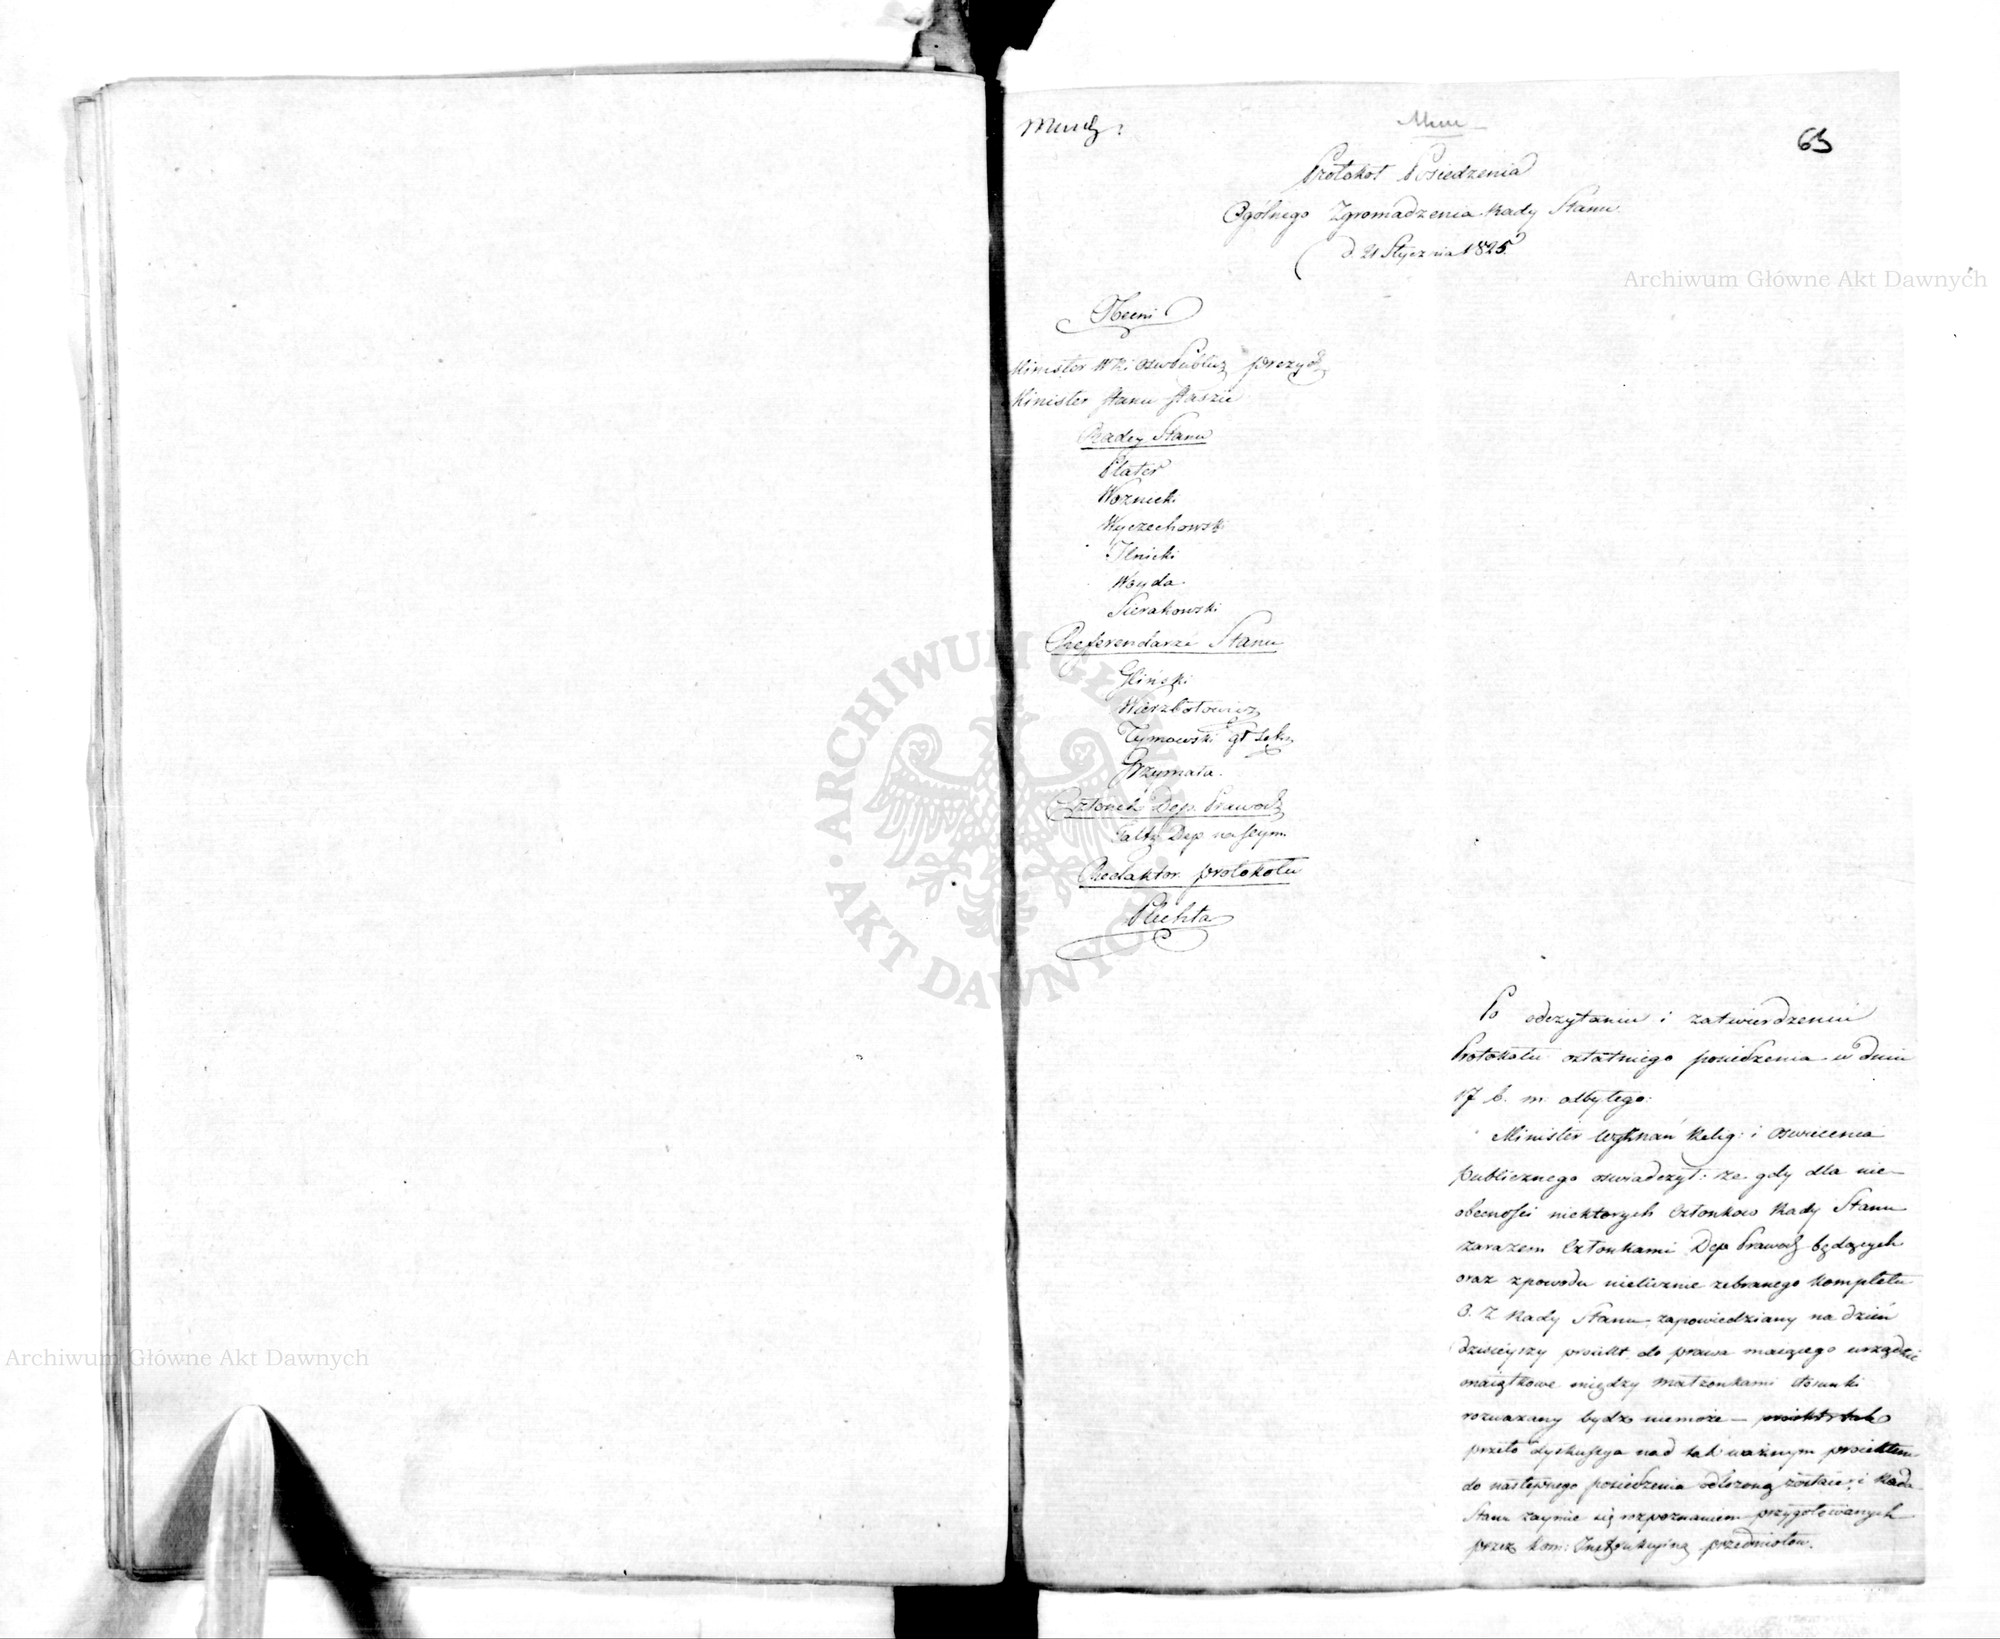 63
Protokół Posiedzenia
Ogólnego Zgromadzenia Rady Stanu
d. 21 Stycznia 1825.
Archiwum Główne Akt Dawnych
Obecni
Minister WR i Publicz prezyd
Minister Stanu Staszic
Radcy Stanu
Plater
Woznicki
Wyczechowski
Ilnicki
Woyda
Sierakowski
Referendarze Stanu
Gliński
Wierzbołowicz
Tymowski
Grzymała.
Członek Dep. Prawod
Dep na Seym
Redaktor protokołu
Plichta
ARCHIWUM GŁÓWNE AKT DAWNYCH
Po odczytaniu i zatwierdzeniu
Protokołu ostatniego posiedzenia w dniu
17 b. m. odbytego:
Minister Wyznań Relig: i Oswiecenia
publicznego oswiadczył: że gdy dla nie-
obecności niektorych Członkow Rady Stanu
zarazem Członkami Dep Prawod będących
oraz z powodu nielicznie zebranego kompletu
O. Z Rady Stanu, zapowiedziany na dzień
dzisieyszy proiekt do prawa maiącego urządzić
maiątkowe między małżonkami stosunki
rozważany bydź niemoże —
przeto dyskussya nad tak ważnym proiektem
do następnego posiedzenia odłożoną zostaie, i Rada
Stanu zaymie się rozpoznaniem przygotowanych
przez Kom: Instrukcyiną przedmiotow.
Archiwum Główne Akt Dawnych